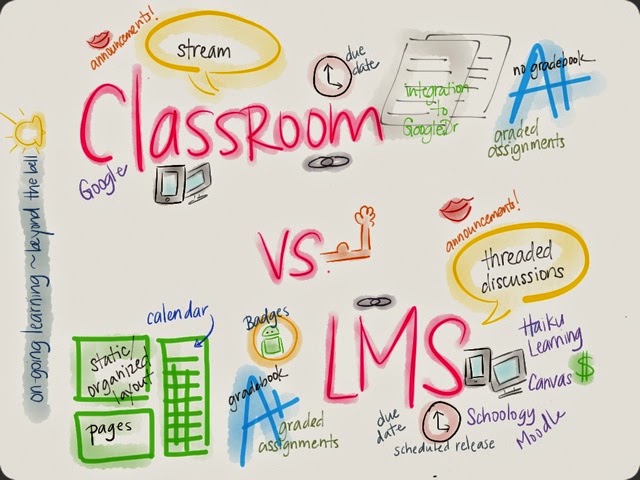 announcements!
stream
due
date
Integration
to
Google Dr
no gradebook
A+
graded
assignments
Classroom
Google
on-going learning ~ beyond the bell
VS.
announcements!
threaded
discussions
calendar
static/
organized
layout
pages
Badges
gradebook
A+
graded
assignments
LMS
due
date
scheduled release
Haiku
Learning
Canvas $
Schoology
Moodle